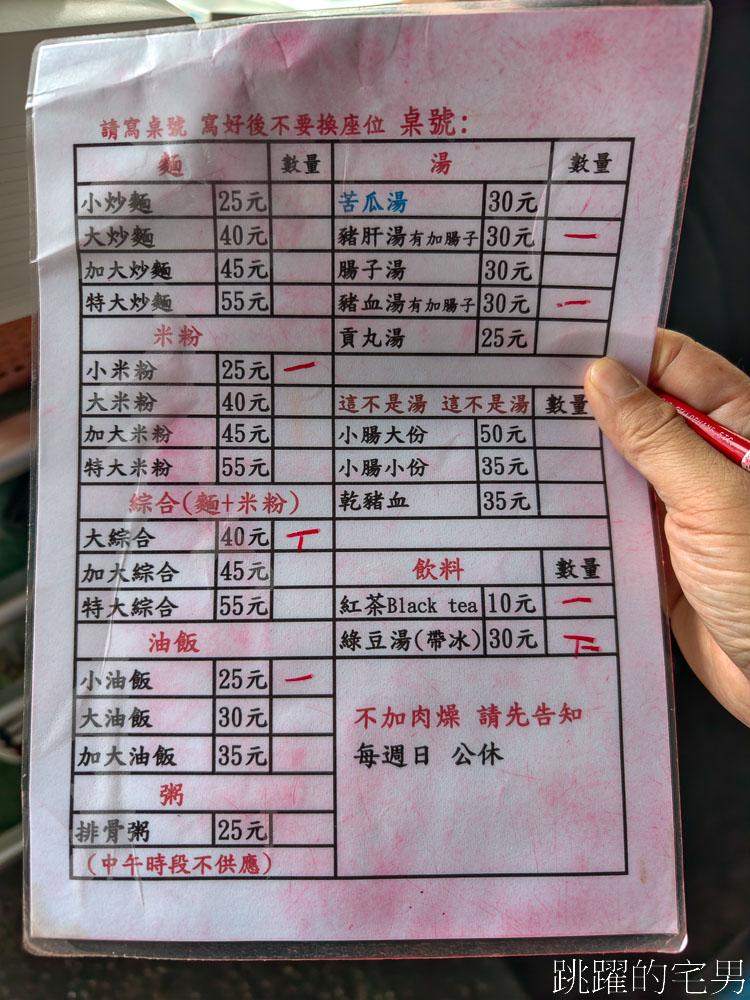 請寫桌號 寫好後不要換座位 桌號:
麵 數量 湯 數量
小炒麵 25元 苦瓜湯 30元
大炒麵 40元 豬肝湯有加腸子 30元 一
加大炒麵 45元 腸子湯 30元
特大炒麵 55元 豬血湯有加腸子 30元 一
米粉 貢丸湯 25元
小米粉 25元 一
大米粉 40元 這不是湯 這不是湯 數量
加大米粉 45元 小腸大份 50元
特大米粉 55元 小腸小份 35元
綜合(麵+米粉) 乾豬血 35元
大綜合 40元 丅
加大綜合 45元 飲料 數量
特大綜合 55元 紅茶Black tea 10元 一
油飯 綠豆湯(帶冰) 30元
小油飯 25元 一
大油飯 30元 不加肉燥 請先告知
加大油飯 35元 每週日 公休
粥
排骨粥 25元
(中午時段不供應)
跳躍的宅男